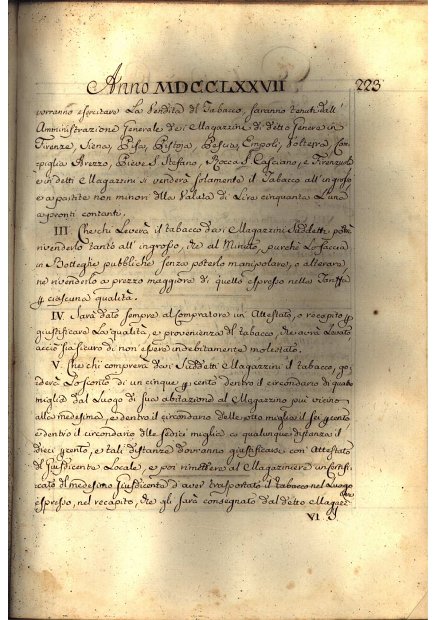 Anno MDCCLXXVII 223
vorranno esercitare La Vendita del Tabacco, saranno tenuti dall'
Amministrazione Generale dei Magazzini di detto Genere in
Firenze, Siena, Pisa, Pistoja, Pescia, Empoli, Volterra, Cam:
piglia Arezzo, Pieve S. Stefano, Rocca S. Casciano, e Firenzuola
e in detti Magazzini si venderà solamente il Tabacco all'ingrosso
e a partite non minori della Valuta di Lire cinquanta L'una
a pronti contanti.
III. Che chi Leverà il tabacco dai Magazzini Suddetti potrà
rivenderlo tanto all'ingrosso, che al Minuto, purchè Lo faccia
in Botteghe pubbliche senza poterlo manipolare, o alterare
nè rivenderlo a prezzo maggiore di quello espresso nella Tariffa
p ciascuna qualità.
IV. Sarà dato sempre al Compratore un Attestato, o recapito p
giustificare La qualità, e provenienza del tabacco, che avrà Levato
acciò sia sicuro di non essere indebitamente molestato.
V. Che chi comprerà dai Suddetti Magazzini il tabacco, go:
derà Lo sconto di un cinque p cento dentro il circondario di quattro
miglia dal Luogo di sua abitazione al Magazzino più vicino
alla medesima, e dentro il circondario delle otto miglia il sei p cento
e dentro il circondario delle sedici miglia o a qualunque distanza il
dieci p cento, e tali distanze dovranno giustificarsi con Attestato
del Giusdicente Locale, e poi rimettere al Magazziniere un Certifi:
cato del medesimo Giusdicente d'aver trasportato il tabacco nel Luogo
espresso, nel recapito, che gli sarà consegnato dal detto Magazz:
VI.